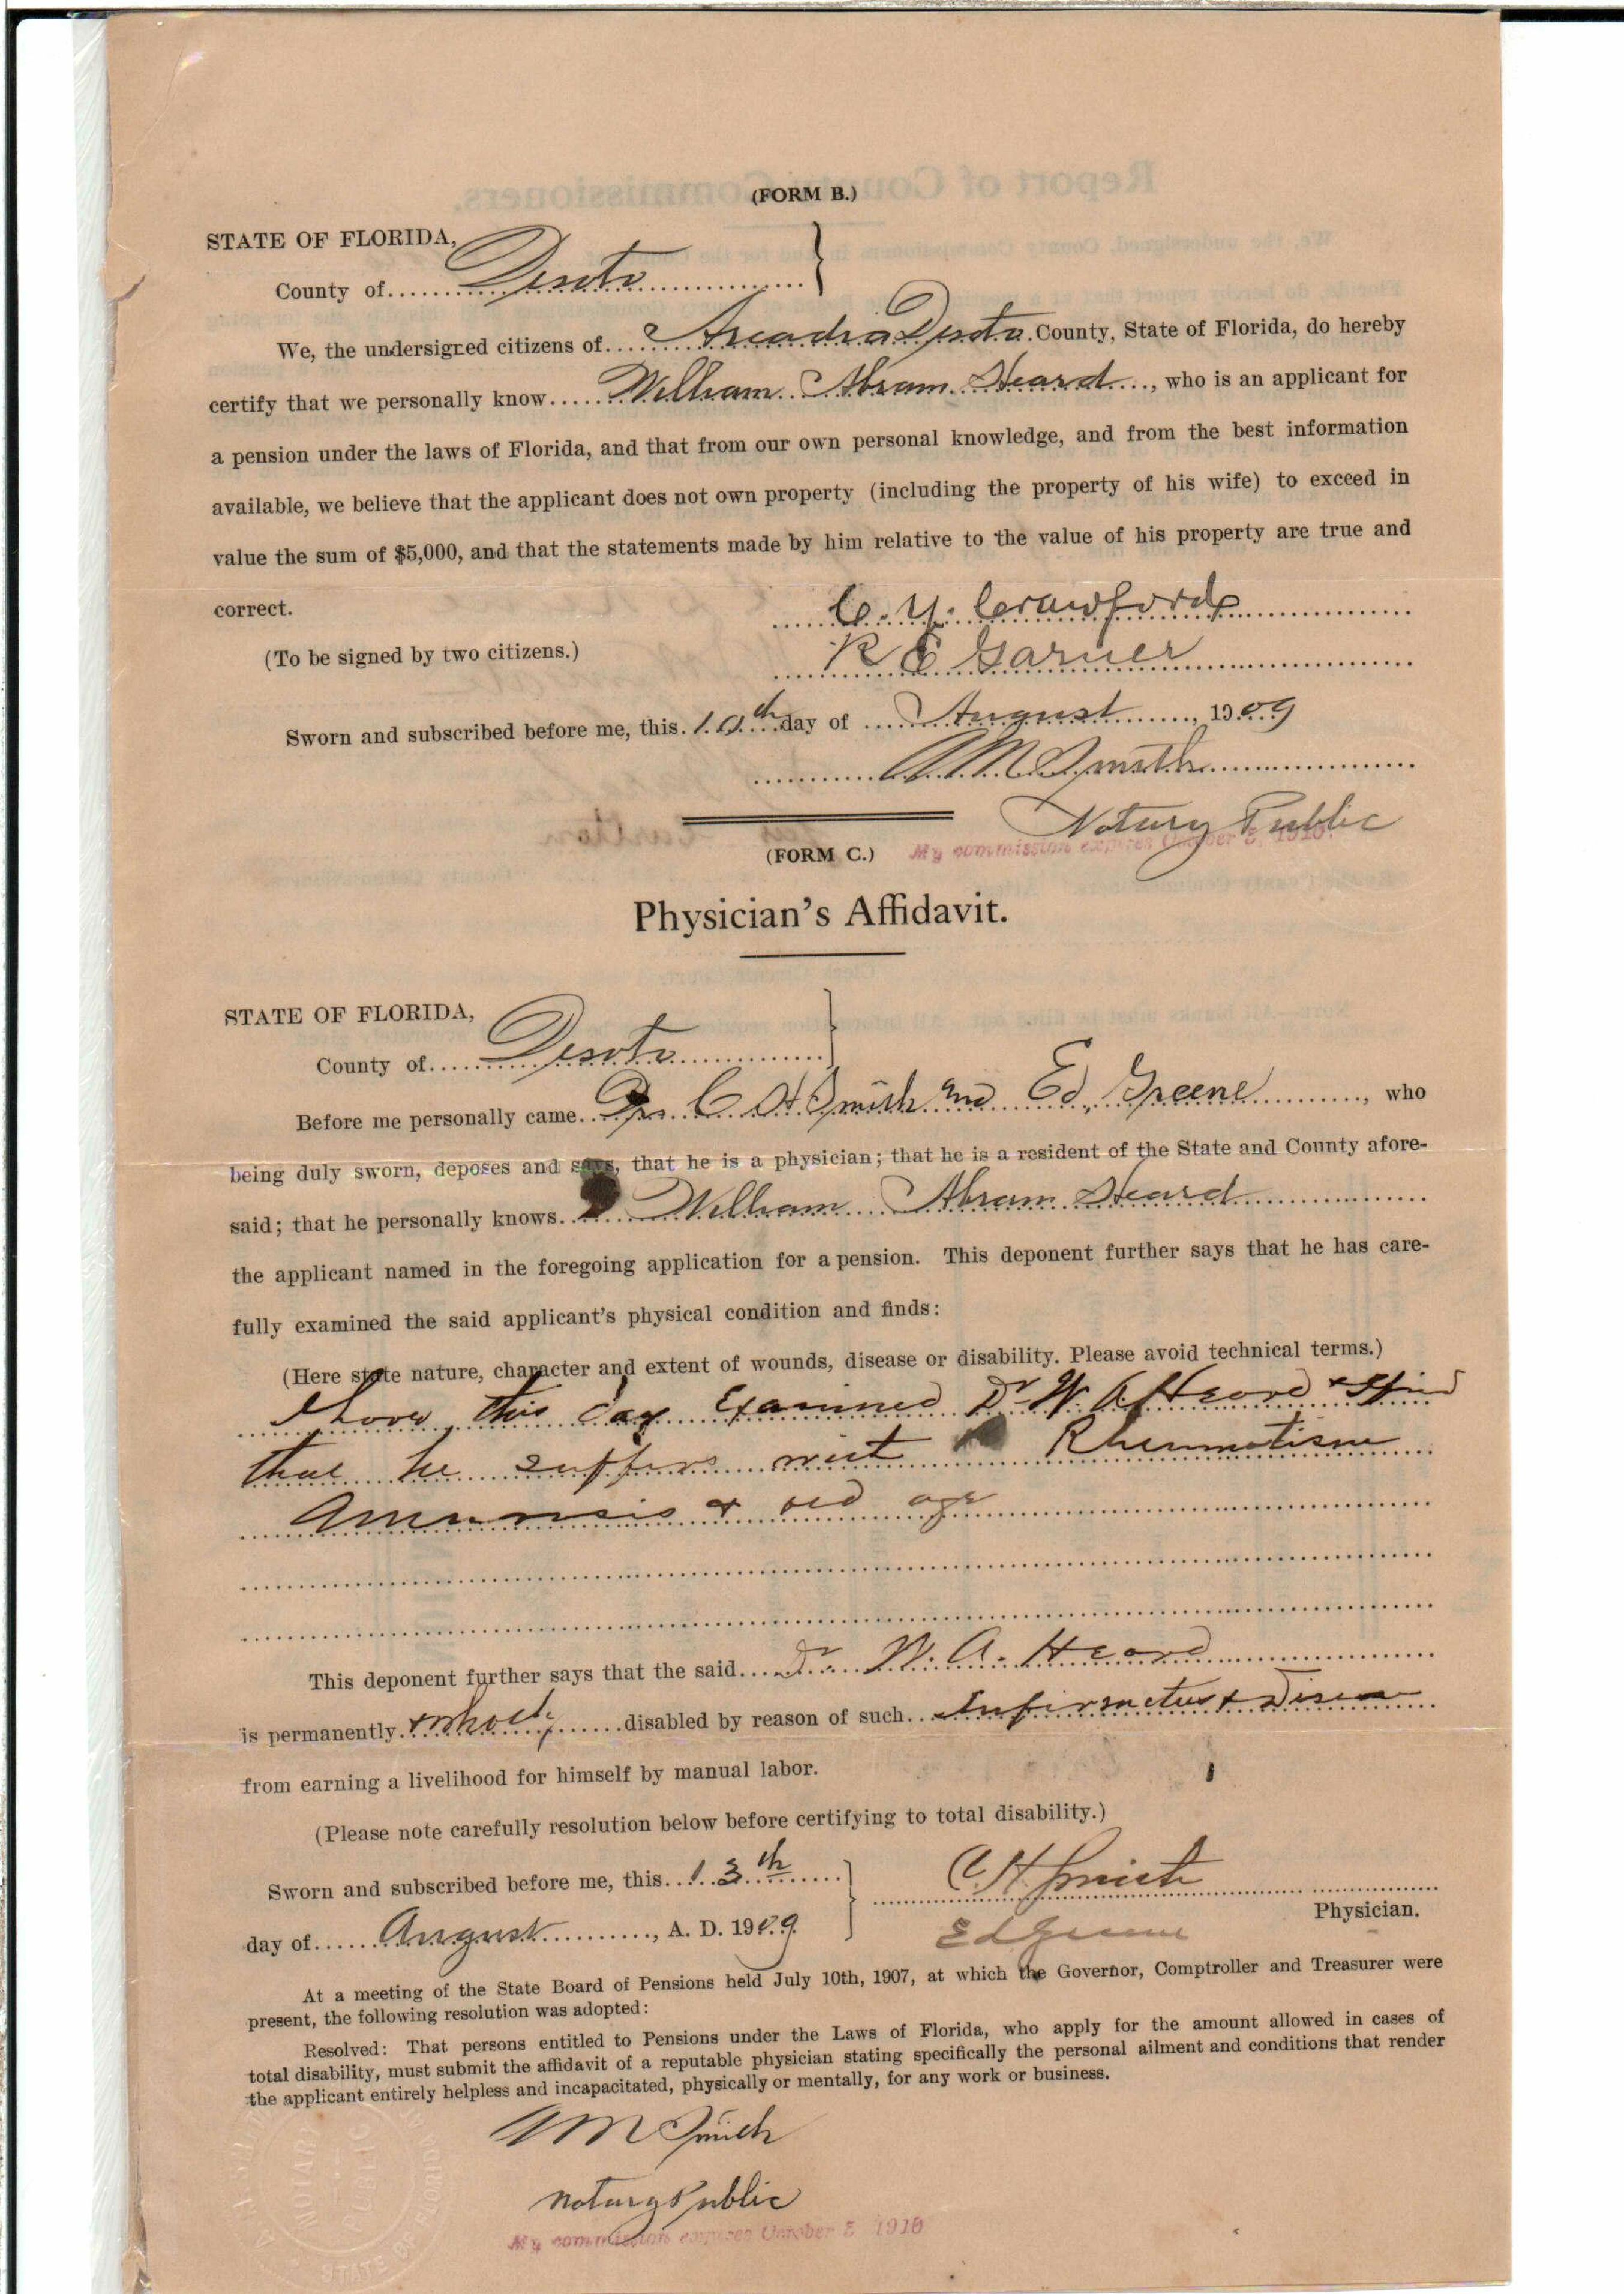 (FORM B.)
STATE OF FLORIDA,
County of Desoto
We, the undersigned citizens of Arcadia Desoto County, State of Florida, do hereby
certify that we personally know William Abram Heard, who is an applicant for
a pension under the laws of Florida, and that from our own personal knowledge, and from the best information
available, we believe that the applicant does not own property (including the property of his wife) to exceed in
value the sum of $5,000, and that the statements made by him relative to the value of his property are true and
correct.
C. Y. Crawford
(To be signed by two citizens.)
R E Garner
Sworn and subscribed before me, this 10th day of August, 1909
A M Smith
Notary Public
My commission expires October 5, 1910.
(FORM C.)
Physician's Affidavit.
STATE OF FLORIDA,
County of Desoto
Before me personally came Drs. C H Smith and Ed. Greene, who
being duly sworn, deposes and says, that he is a physician; that he is a resident of the State and County afore-
said; that he personally knows William Abram Heard
the applicant named in the foregoing application for a pension. This deponent further says that he has care-
fully examined the said applicant's physical condition and finds:
(Here state nature, character and extent of wounds, disease or disability. Please avoid technical terms.)
I have this day Examined Dr W. A Heard & find
that he suffers with Rheumatism
& old age
This deponent further says that the said Dr. W. A. Heard
is permanently & wholly disabled by reason of such Infirmities & Disease
from earning a livelihood for himself by manual labor.
(Please note carefully resolution below before certifying to total disability.)
Sworn and subscribed before me, this 13th
C H Smith
Physician.
day of August, A. D. 1909
Ed Greene
At a meeting of the State Board of Pensions held July 10th, 1907, at which the Governor, Comptroller and Treasurer were
present, the following resolution was adopted:
Resolved: That persons entitled to Pensions under the Laws of Florida, who apply for the amount allowed in cases of
total disability, must submit the affidavit of a reputable physician stating specifically the personal ailment and conditions that render
the applicant entirely helpless and incapacitated, physically or mentally, for any work or business.
A M Smith
Notary Public
My commission expires October 5 1910
NOTARY PUBLIC
STATE OF FLORIDA